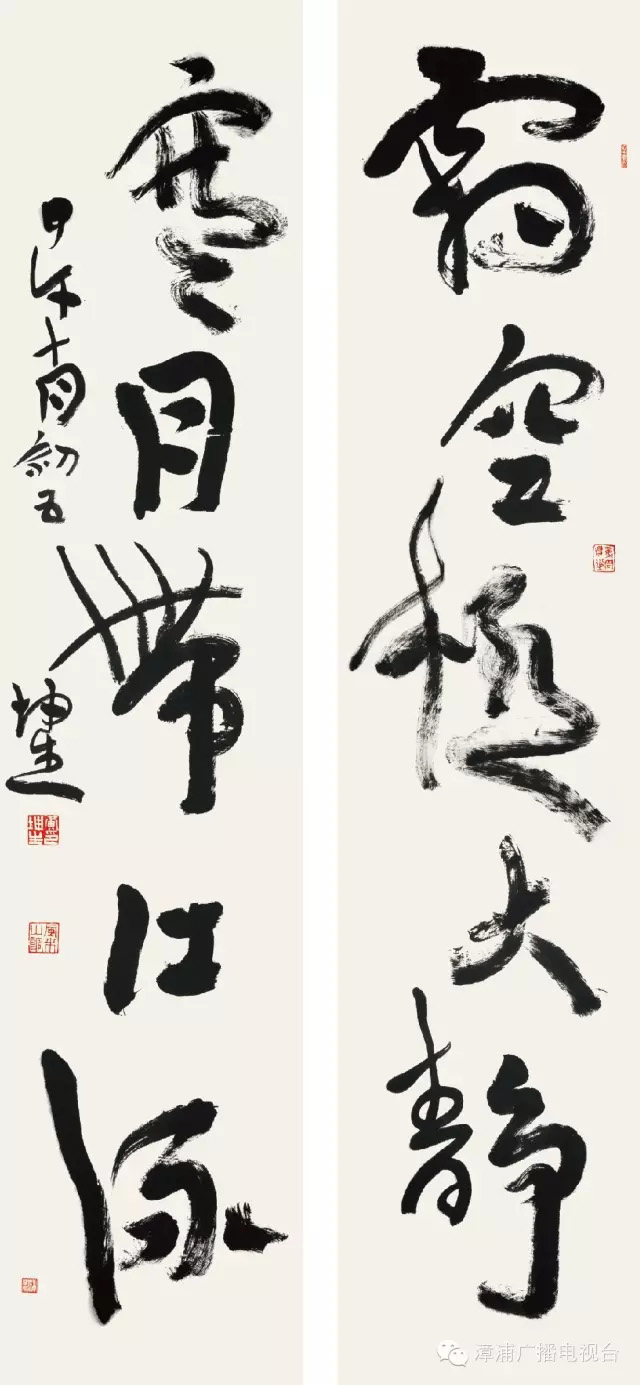 霜空極天静
寒月帶江流
甲午十一月初五
坤生
漳浦广播电视台